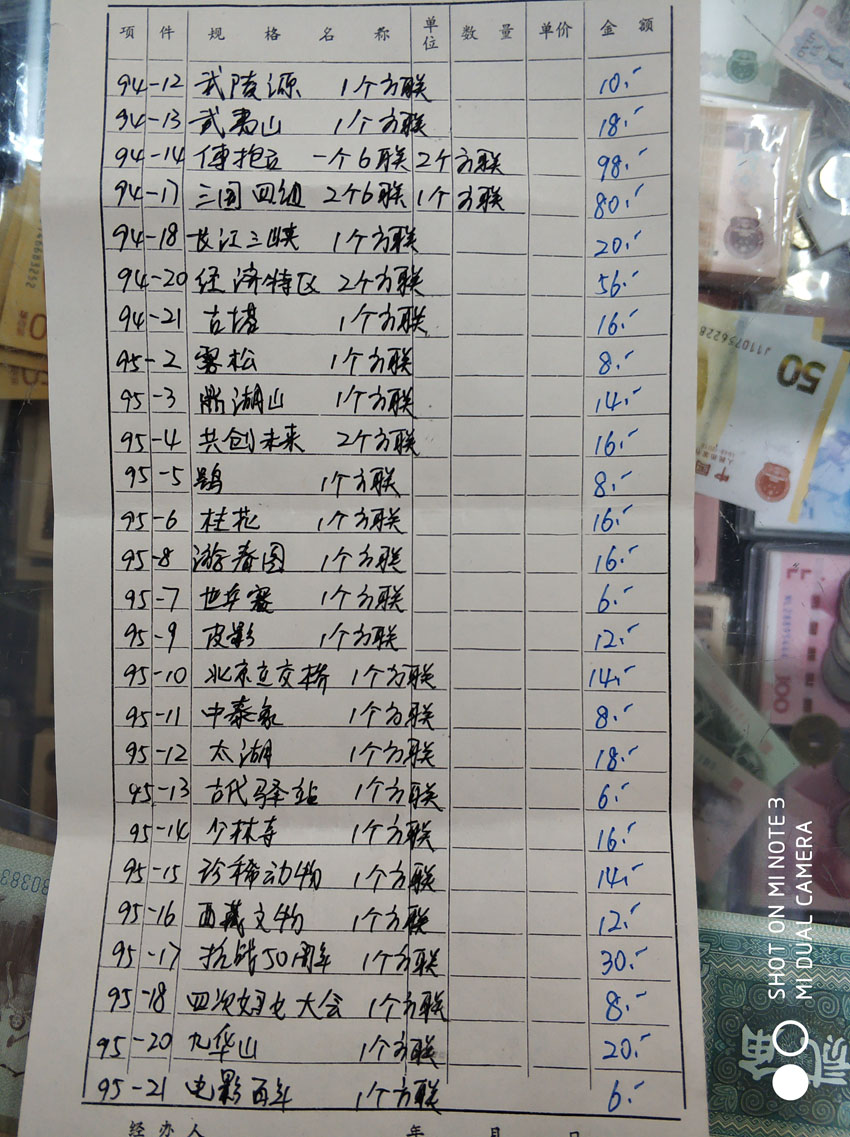 项 件 规 格 名 称 单位 数 量 单价 金 额
94-12 武陵源 1个方联 10.-
94-13 武夷山 1个方联 18.-
94-14 傅抱石 一个6联 2个方联 98.-
94-17 三国四组 2个6联 1个方联 80.-
94-18 长江三峡 1个方联 20.-
94-20 经济特区 2个方联 56.-
94-21 古塔 1个方联 16.-
95-2 雾松 1个方联 8.-
95-3 鼎湖山 1个方联 14.-
95-4 共创未来 2个方联 16.-
95-5 1个方联 8.-
95-6 桂花 1个方联 16.-
95-8 游春图 1个方联 16.-
95-7 世乒赛 1个方联 6.-
95-9 皮影 1个方联 12.-
95-10 北京立交桥 1个方联 14.-
95-11 中泰象 1个方联 8.-
95-12 太湖 1个方联 18.-
95-13 古代驿站 1个方联 6.-
95-14 少林寺 1个方联 16.-
95-15 珍稀动物 1个方联 14.-
95-16 西藏文物 1个方联 12.-
95-17 抗战50周年 1个方联 30.-
95-18 四次妇女大会 1个方联 8.-
95-20 九华山 1个方联 20.-
95-21 电影百年 1个方联 6.-
经办人 年 月 日
J110756228
50
中国
100
SHOT ON MI NOTE 3
MI DUAL CAMERA